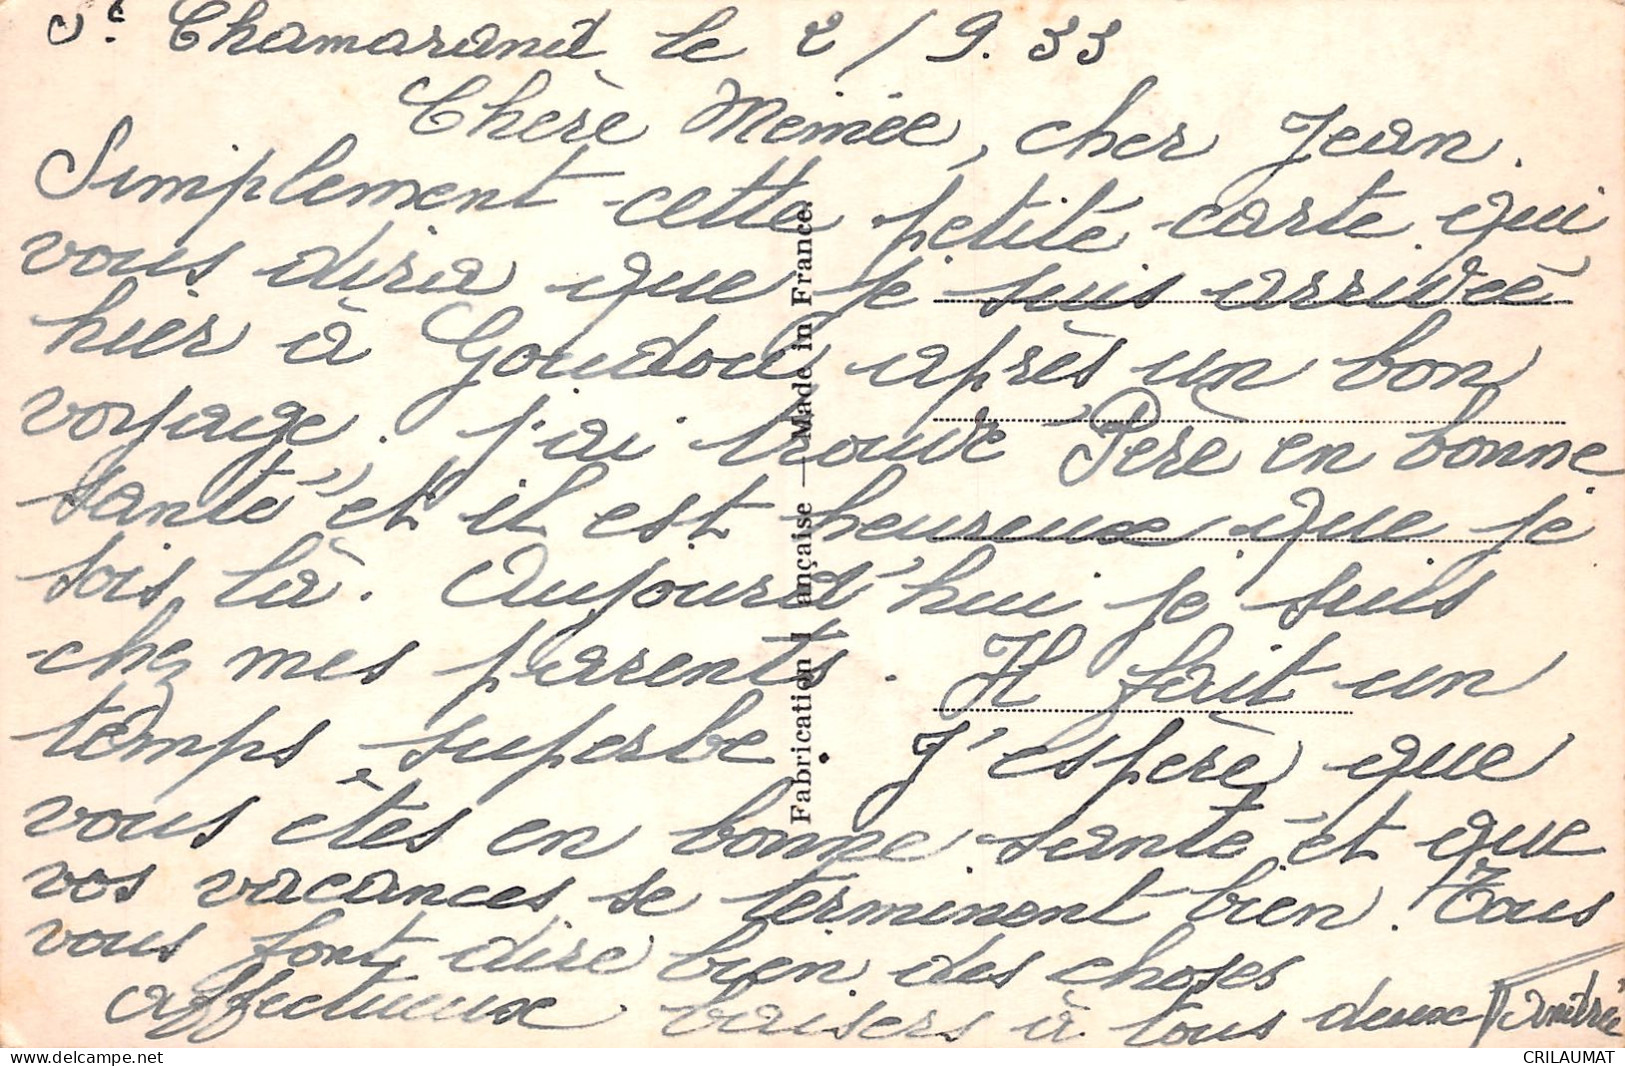 St Chamarand le 2/9.33
Chère Mémée, cher Jean.
Simplement cette petite carte qui
vous dira que je suis arrivée
hier à Goudou après un bon
voyage. j'ai trouvé Père en bonne
santé et il est heureux que je
sois là. Aujourd'hui je suis
chez mes parents. Il fait un
temps superbe. J'espère que
vous êtes en bonne santé et que
vos vacances se terminent bien. Tous
vous font dire bien des choses
affectueux baisers à tous deux Andrée
Fabrication Française — Made in France.
CRILAUMAT